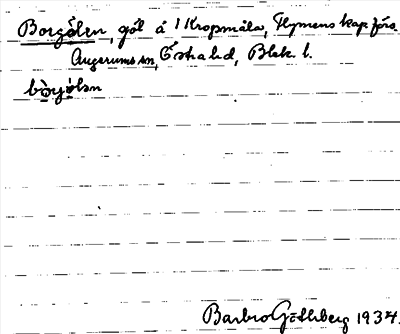 Borgölen, göl å 1 Kropmåla, Flymens kap. förs.
Augerums sn, Östra hd, Blek. l.
Barbro Göthberg 1934.